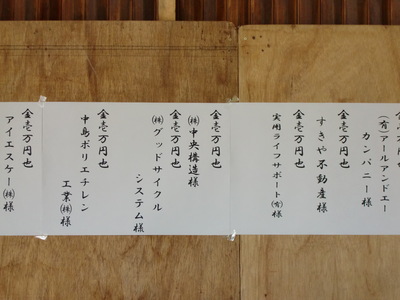 (有)アールアンドエー
カンパニー様
金壱万円也
すきや不動産様
金壱万円也
実用ライフサポート(有)様
(株)中央構造様
金壱万円也
(株)グッドサイクル
システム様
金壱万円也
中島ポリエチレン
工業(株)様
金壱万円也
アイエスケー(株)様